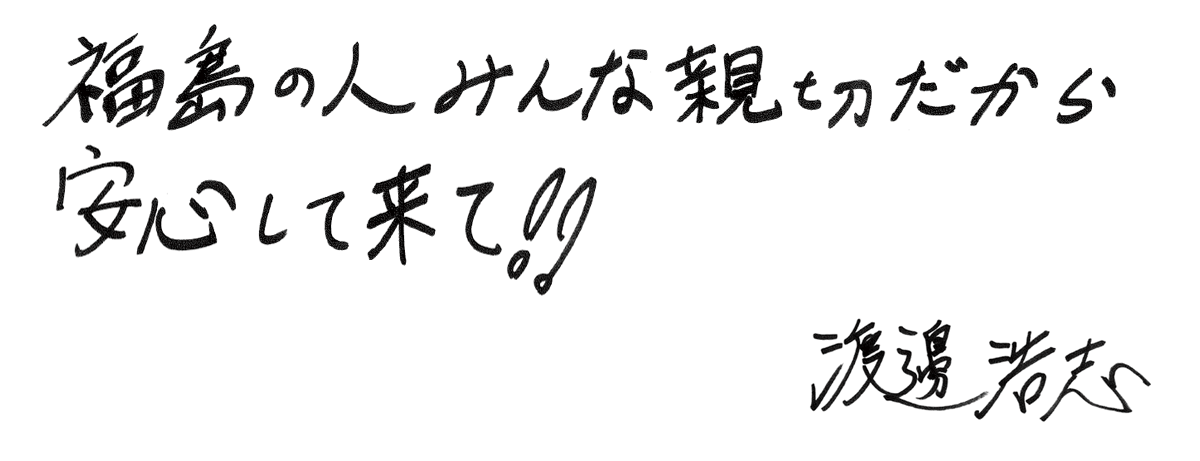 福島の人みんな親切だから
安心して来て!!
渡邊浩志